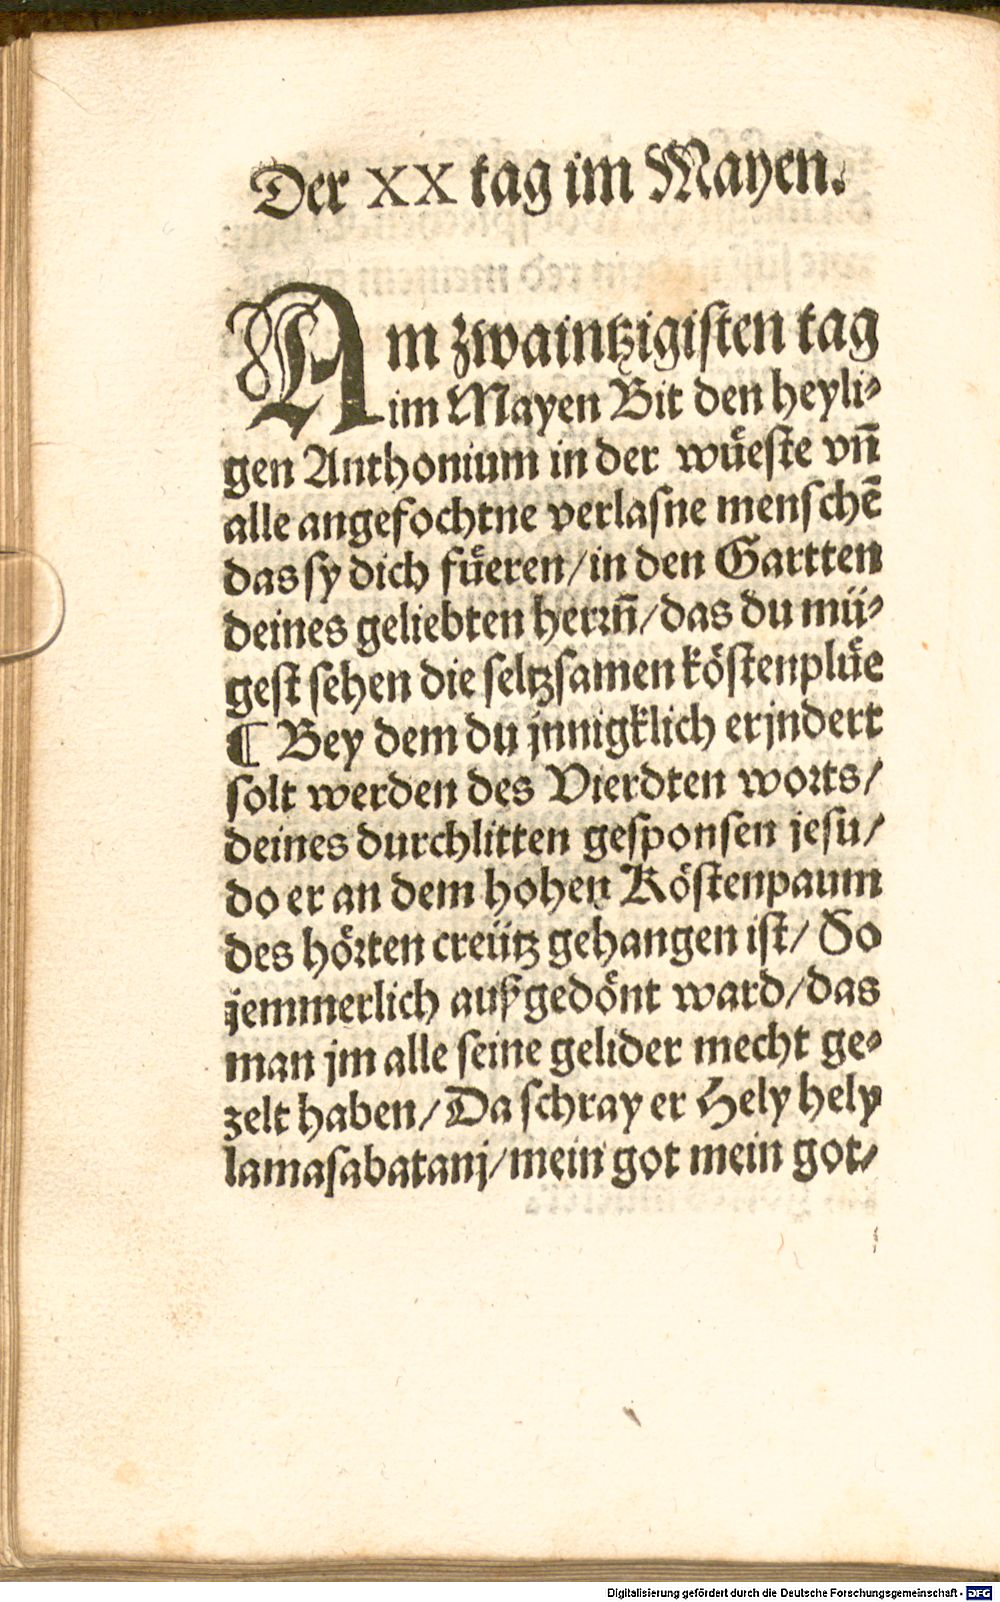 Der XX tag im Mayen.
Am zwaintzigisten tag
im Mayen Bit den heyli⸗
gen Anthonium in der wuͤeste vñ
alle angefochtne verlasne menschẽ
das sy dich fuͤeren/in den Gartten
deines geliebten herrñ/das du mü⸗
gest sehen die seltzsamen köstenpluͤe
¶ Bey dem du jnnigklich erjndert
solt werden des Vierdten worts/
deines durchlitten gesponsen jesu/
do er an dem hohen Köstenpaum
des hörten creütz gehangen ist/ So
jemmerlich außgedönt ward/das
man jm alle seine gelider mecht ge⸗
zelt haben/Da schray er Hely hely
lamasabatanj/mein got mein got⸗
Digitalisierung gefördert durch die Deutsche Forschungsgemeinschaft - DFG